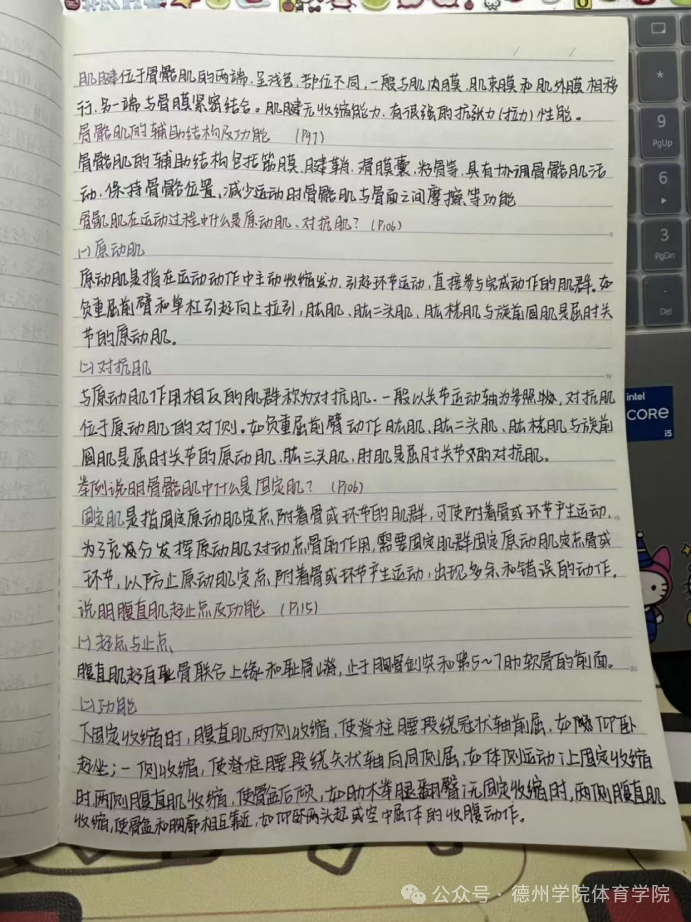 肌腱位于骨骼肌的两端,呈浅色,部位不同,一般与肌内膜、肌束膜和肌外膜相移
行,另一端与骨膜紧密结合。肌腱无收缩能力,有很强的抗张力(拉力)性能。
骨骼肌的辅助结构及功能 (P97)
骨骼肌的辅助结构包括筋膜、腱鞘、滑膜囊、籽骨等,具有协调骨骼肌活
动,保持骨骼位置,减少运动时骨骼肌与骨面之间摩擦等功能
骨骼肌在运动过程中什么是原动肌、对抗肌?(P106)
(一)原动肌
原动肌是指在运动动作中主动收缩发力,引起环节运动,直接参与完成动作的肌群。如
负重屈前臂和单杠引起向上拉引,肱肌、肱二头肌、肱桡肌与旋前圆肌是屈肘关
节的原动肌。
(二)对抗肌
与原动肌作用相反的肌群称为对抗肌。一般以关节运动轴为参照物,对抗肌
位于原动肌的对侧。如负重屈前臂动作肱肌、肱二头肌、肱桡肌与旋前
圆肌是屈肘关节的原动肌,肱三头肌、肘肌是屈肘关节的对抗肌。
举例说明骨骼肌中什么是固定肌?(P106)
固定肌是指固定原动肌定点附着骨或环节的肌群,可使附着骨或环节产生运动。
为了充分发挥原动肌对动点骨的作用,需要固定肌群固定原动肌定点骨或
环节,以防止原动肌定点附着骨或环节产生运动,出现多余和错误的动作。
说明腹直肌起止点及功能 (P115)
(一)起点与止点
腹直肌起自耻骨联合上缘和耻骨嵴,止于胸骨剑突和第5~7肋软骨的前面。
(二)功能
下固定收缩时,腹直肌两侧收缩,使脊柱腰段绕冠状轴前屈,如仰卧
起坐;一侧收缩,使脊柱腰段绕矢状轴向同侧屈,如体侧运动;上固定收缩
时,两侧腹直肌收缩,使骨盆后倾,如肋木举腿;无固定收缩时,两侧腹直肌
收缩,使骨盆和胸廓相互靠近,如仰卧两头起或空中屈体的收腹动作。
9
PgUp
6
3
PgDn
Del
intel
CORE
i5
公众号·德州学院体育学院